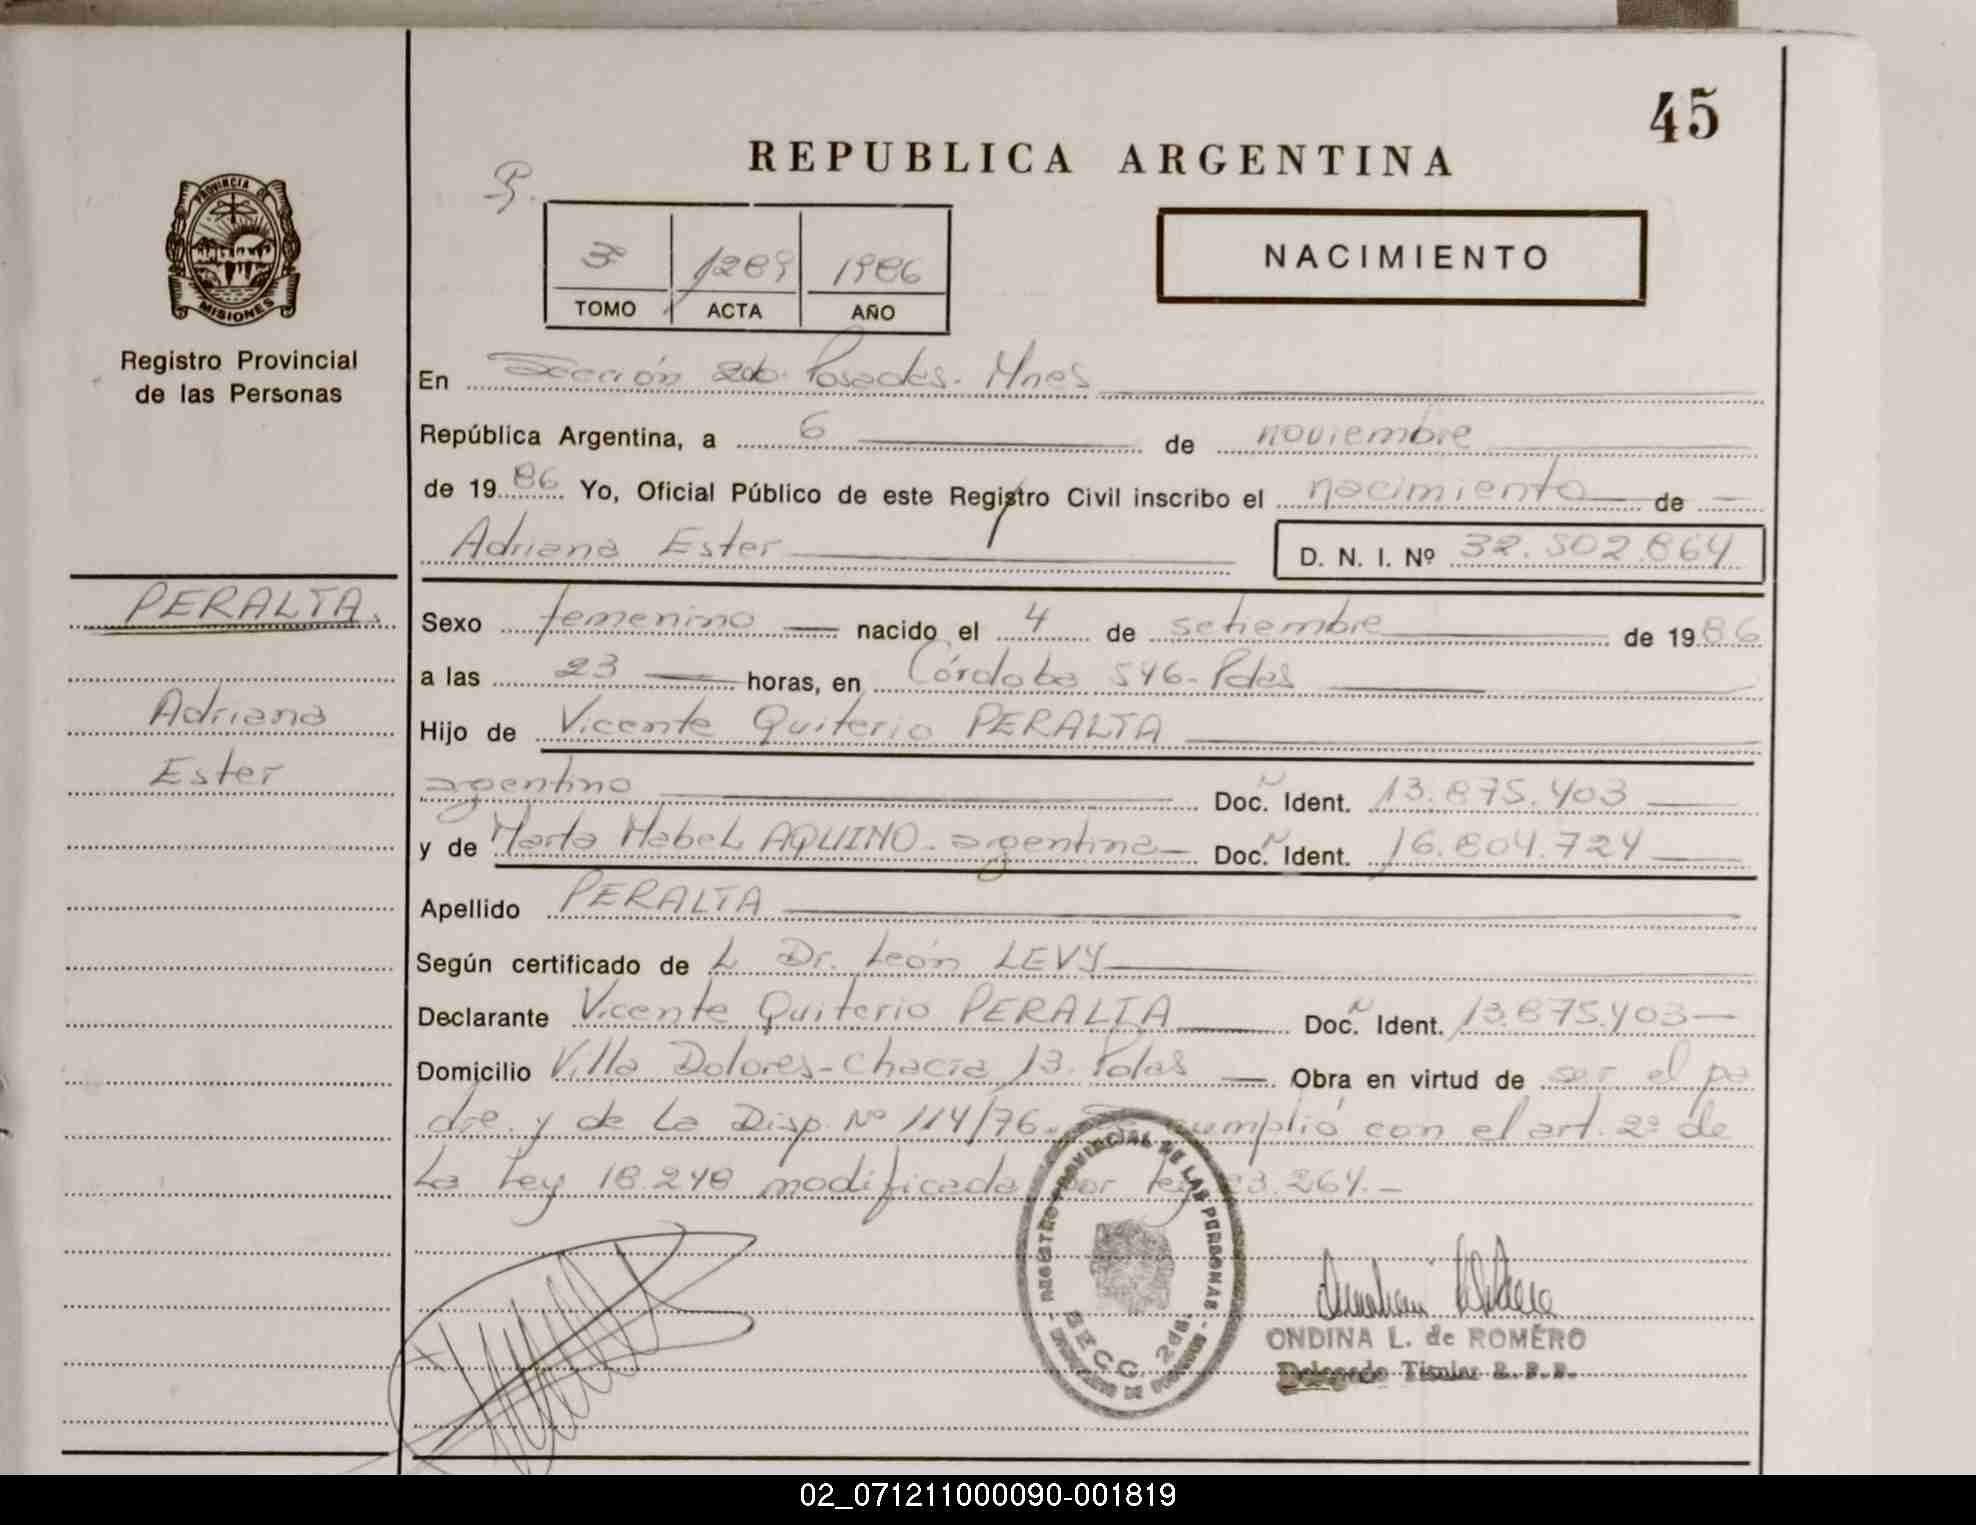 45
REPUBLICA ARGENTINA
PROVINCIA DE
MISIONES
Registro Provincial
de las Personas
3º 1289 1986
TOMO ACTA AÑO
NACIMIENTO
En Sección 2da. Posadas. Mnes
República Argentina, a 6 de noviembre
de 1986 Yo, Oficial Público de este Registro Civil inscribo el nacimiento de
Adriana Ester
D. N. I. Nº 32.502.864
PERALTA.
Adriana
Ester
Sexo femenino nacido el 4 de setiembre de 1986
a las 23 horas, en Córdoba 546-Pdas
Hijo de Vicente Quiterio PERALTA
argentino Doc. Ident. 13.875.403
y de Marta Mabel AQUINO - argentina Doc. Ident. 16.804.724
Apellido PERALTA
Según certificado de L Dr. León LEVY
Declarante Vicente Quiterio PERALTA Doc. Ident. 13.875.403
Domicilio Villa Dolores-Chacra 13. Pdas Obra en virtud de ser el pa
dre y de la Disp. Nº 114/76. Se cumplió con el art. 2º de
La Ley 18.248 modificada por ley 23.264.-
REGISTRO PROVINCIAL DE LAS PERSONAS
SECC. 2da.
ONDINA L. de ROMERO
Delegado Titular R. P. P.
02_071211000090-001819